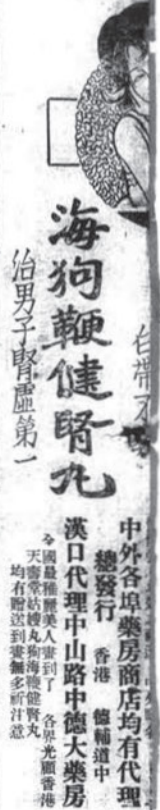 白帶不
海狗鞭健腎丸
治男子腎虛第一
中外各埠藥房商店均有代理
總發行 香港 德輔道中
漢口代理中山路中德大藥房
全國最雅麗美人畫到了 各界光顧香港
天壽堂姑嫂丸海狗鞭健腎丸
均有贈送到畫無多祈注意